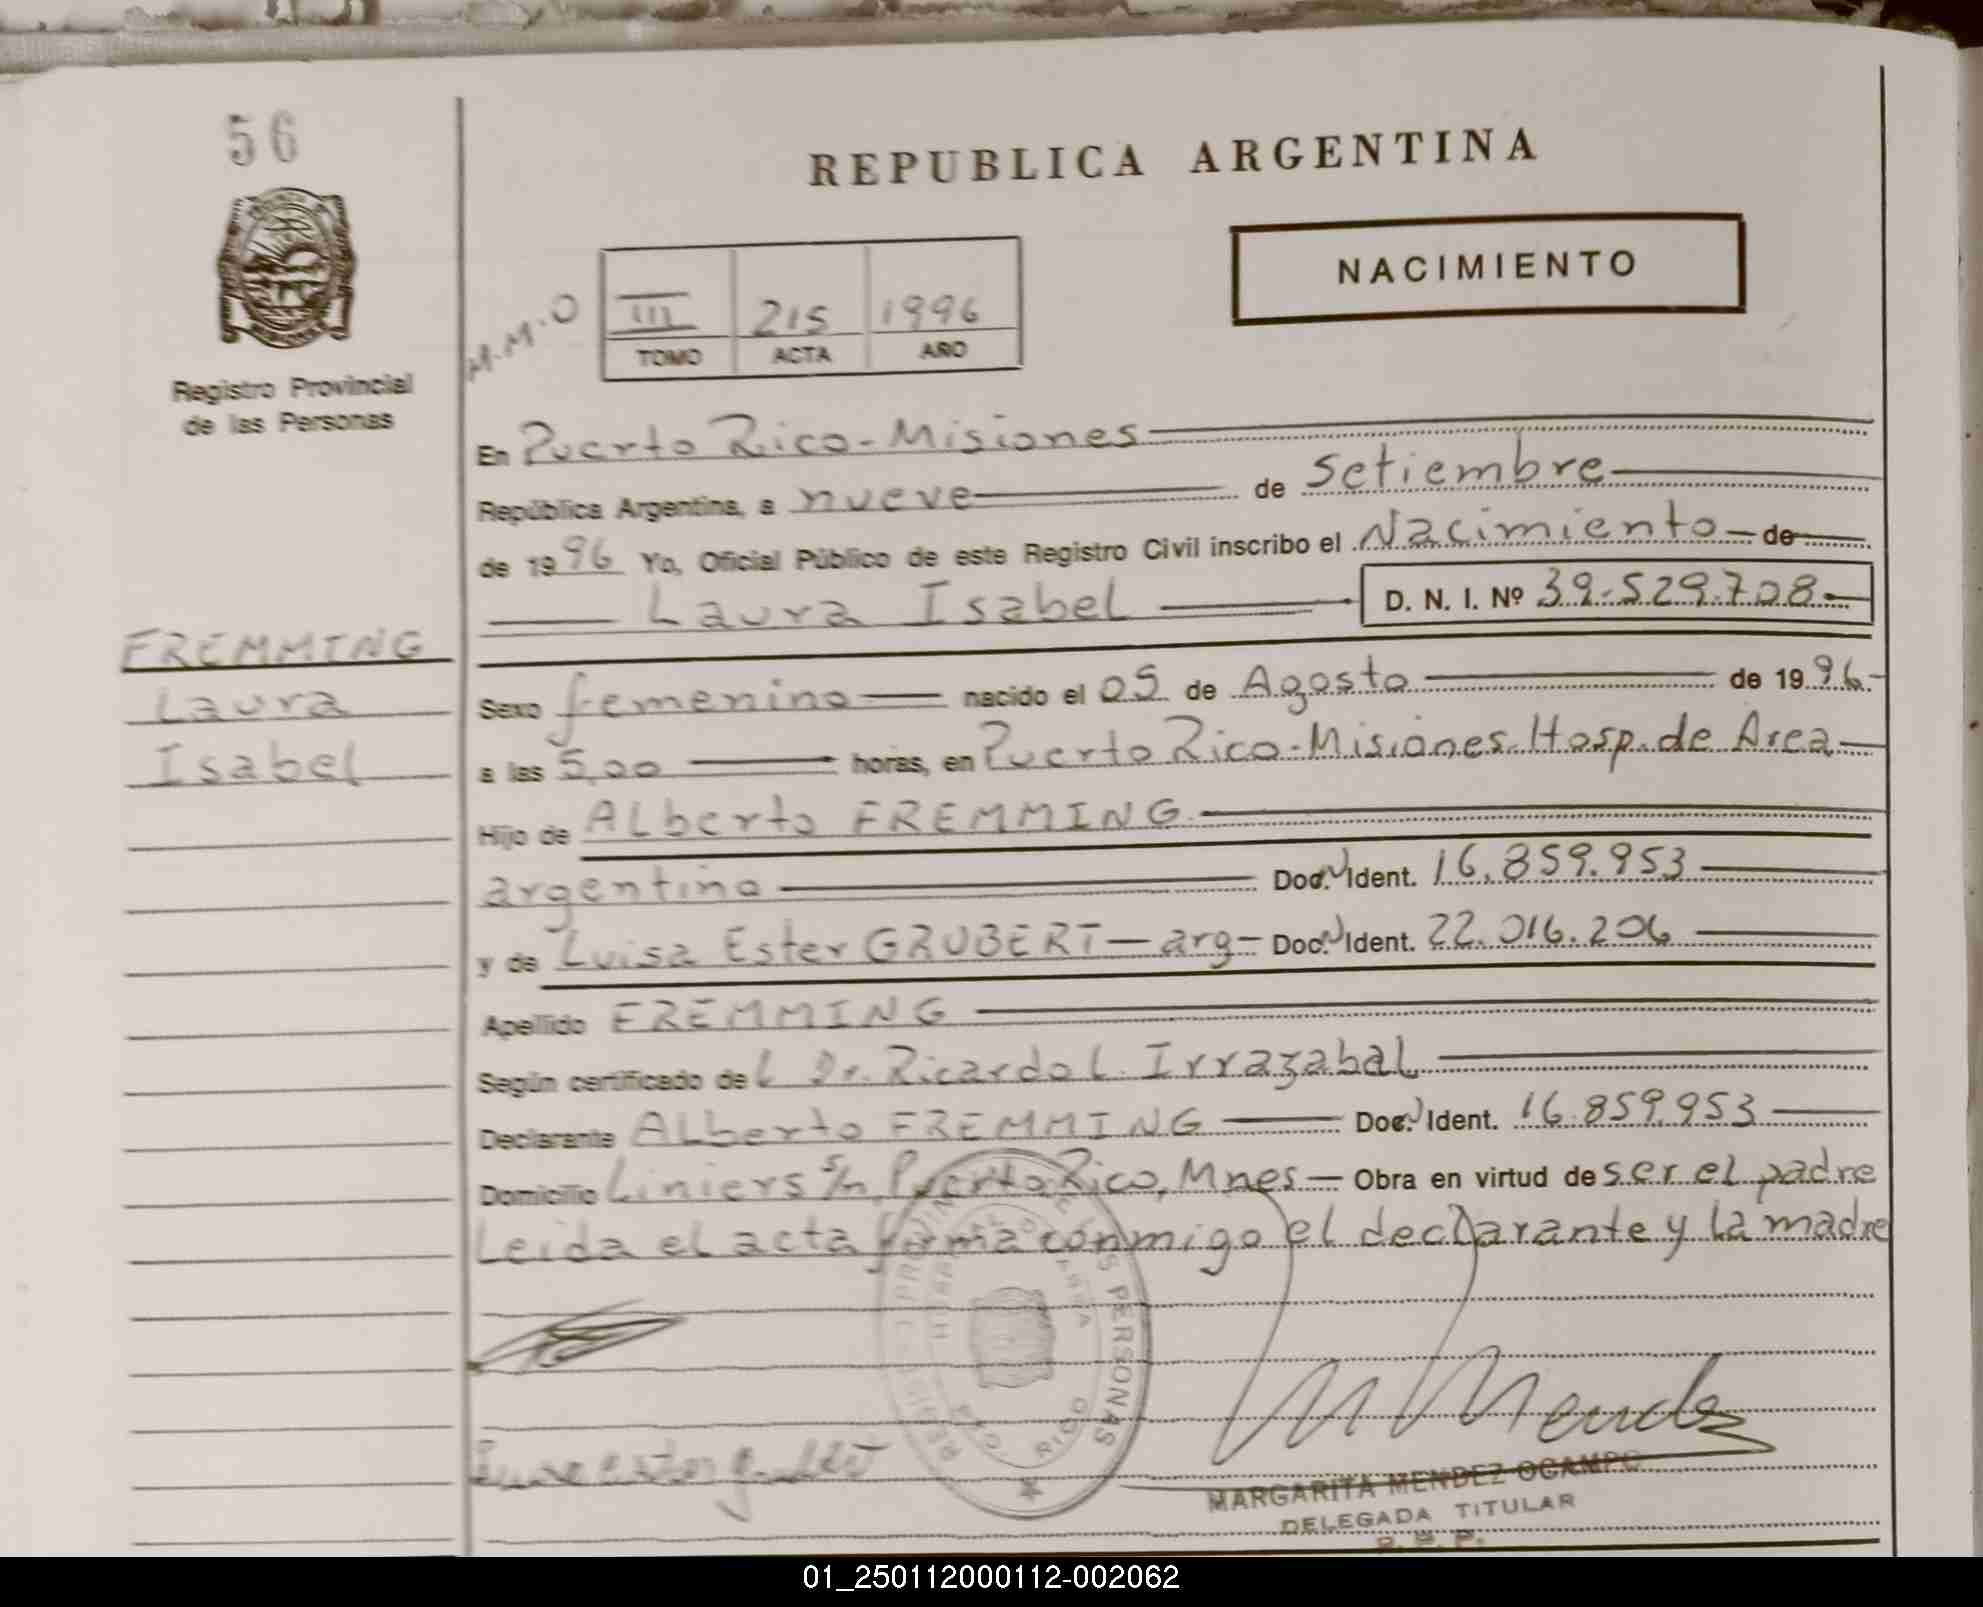 56
REPUBLICA ARGENTINA
NACIMIENTO
M.M.O
III 215 1996
TOMO ACTA AÑO
Registro Provincial
de las Personas
En Puerto Rico - Misiones
República Argentina, a nueve de setiembre
de 1996 Yo, Oficial Público de este Registro Civil inscribo el Nacimiento de
Laura Isabel D. N. I. Nº 39.529.708
FREMMING
Laura
Isabel
Sexo femenino nacido el 05 de Agosto de 1996
a las 5,00 horas, en Puerto Rico-Misiones. Hosp. de Area
Hijo de ALberto FREMMING
argentino Doc. N Ident. 16.859.953
y de Luisa Ester GRUBERT - arg - Doc. N Ident. 22.016.206
Apellido FREMMING
Según certificado del Dr. Ricardo L. Irrazabal
Declarante ALberto FREMMING Doc. N Ident. 16.859.953
Domicilio Liniers s/n, Puerto Rico, Mnes - Obra en virtud de ser el padre
Leida el acta firma conmigo el declarante y la madre
PERSONAS
RICO
M Mendez
MARGARITA MENDEZ OCAMPO
DELEGADA TITULAR
R. P. P.
01_250112000112-002062